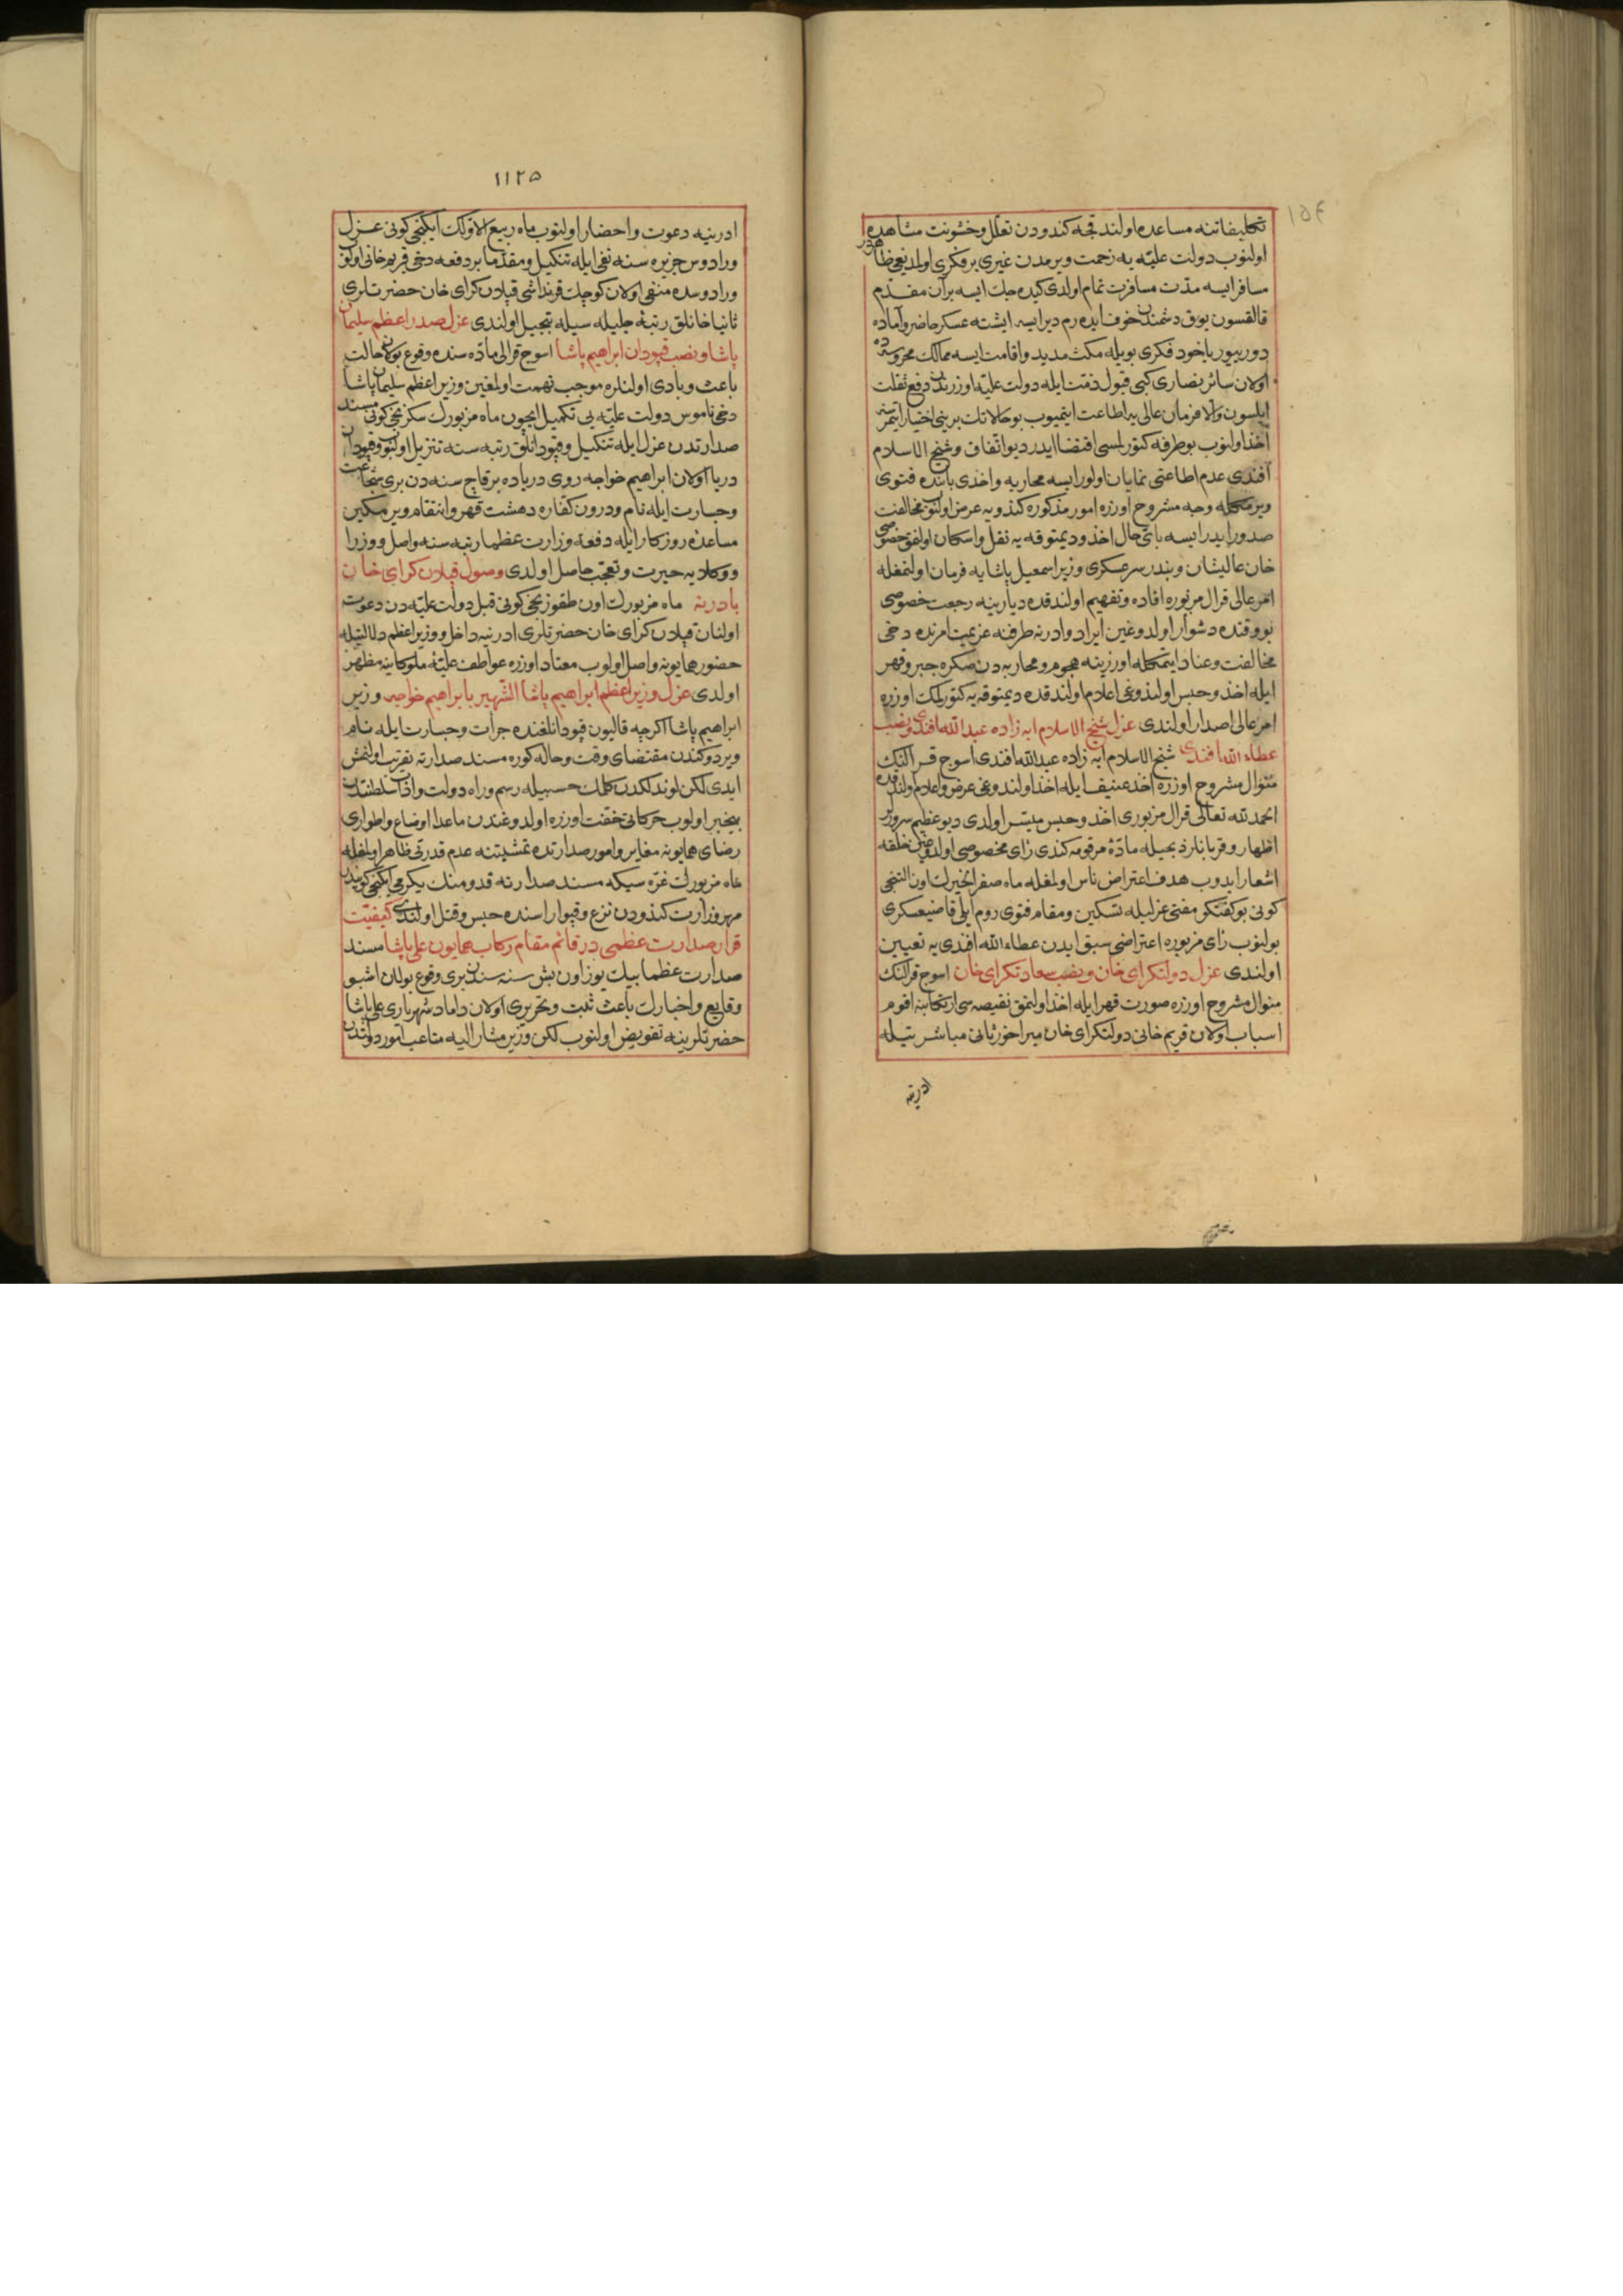 ١٥٤
تکلیفاتنه مساعده اولندقچه کندودن تعلل وخشونت مشاهده
اولنوب دولت علیّه یه زحمت ویرمدن غیری بر فکری اولمدیغی ظاهردر
مسافر ایسه مدّت مسافرت تمام اولدی کیده جك ایسه بر آن مقدّم
قالقسون یوق دشمندن خوف ایده رم دیر ایسه ایشته عسکر حاضر وآماده
دوریبور یاخود فکری بویله مکث مدید واقامت ایسه ممالك محروسه ده
اولان سائر نصاری کبی قبول ذمّت ایله دولت علیّه اوزرندن دفع ثقلت
ایلسون والا فرمان عالی یه اطاعت ایتمیوب بو حالاتك برینی اختیار ایتمزسه
اخذ اولنوب بو طرفه کتورلمسی اقتضا ایدر دیو اتّفاق وشیخ الاسلام
افندی عدم اطاعتی نمایان اولور ایسه محاربه واخذی بابنده فتوی
ویرمکله وجه مشروح اوزره امور مذکوره کندویه عرض اولنوب مخالفت
صدور ایدر ایسه بای حال اخذ ودیمتوقه یه نقل واسکان اولنمق خصوصی
خان عالیشان وبندر سرعسکری وزیر اسمعیل پاشایه فرمان اولنمغله
امر عالی قرال مزبوره افاده وتفهیم اولندقده دیارینه رجعت خصوصی
بو وقتده دشوار اولدوغین ایراد وادرنه طرفنه عزیمت امرنده دخی
مخالفت وعناد ایتمکله اوزرینه هجوم ومحاربه دن صکره جبر وقهر
ایله اخذ وحبس اولندوغی اعلام اولندقده دیمتوقه یه کتورلمك اوزره
امر عالی اصدار اولندی عزل شیخ الاسلام ابه زاده عبد الله افندی ونصب
عطاء الله افندی شیخ الاسلام ابه زاده عبدالله افندی اسوج قرالنك
منوال مشروح اوزره اخذ عنیف ایله اخذ اولندوغی عرض واعلام اولندقده
الحمد لله تعالی قرال مزبوری اخذ وحبس میسّر اولدی دیو عظیم سرور
اظهار وقربانلر ذبحیله مادّۀ مرقومه کندی رای مخصوصی اولدوغین خلقه
اشعار ایدوب هدف اعتراض ناس اولمغله ماه صفر الخیرك اون النجی
کونی بو کفتکو مفتی عزلیله تسکین ومقام فتوی روم ایلی قاضیعسکری
بولنوب رای مزبوره اعتراضی سبق ایدن عطاء الله افندی یه تعیین
اولندی عزل دولتکرای خان ونصب سعادتکرای خان اسوج قرالنك
منوال مشروح اوزره صورت قهر ایله اخذ اولنمق نقیصه سی ارتکابنه اقوم
اسباب اولان قریم خانی دولتکرای خان میراخور ثانی مباشرتیله
ادرنه
١١٢٥
ادرنیه دعوت واحضار اولنوب ماه ربیع الاولك ایکنجی کونی عزل
ورادوس جزیره سنه نفی ایله تنکیل ومقدّما بر دفعه دخی قریم خانی اولوب
ورادوسده منفی اولان کوچك قرنداشی قپلان کرای خان حضرتلری
ثانیا خانلق رتبۀ جلیله سیله تبجیل اولندی عزل صدر اعظم سلیمان
پاشا ونصب قپودان ابراهیم پاشا اسوج قرالی مادّه سنده وقوع بولان حالت
باعث وبادی اولنلره موجب تهمت اولمغین وزیر اعظم سلیمان پاشا
دخی ناموس دولت علیّه یی تکمیل ایچون ماه مزبورك سکزنجی کونی مسند
صدارتدن عزل ایله تنکیل وقپودانلق رتبه سنه تنزیل اولنوب وقپودان
دریا اولان ابراهیم خواجه روی دریاده بر قاچ سنه دن بری شجاعت
وجسارت ایله نام ودرون کفاره دهشت قهر وانتقام ویرمکین
مساعدۀ روزکار ایله دفعة وزارت عظما رتبه سنه واصل ووزرا
ووکلایه حیرت وتعجّب حاصل اولدی وصول قپلان کرای خان
بادرنه ماه مزبورك اون طقوزنجی کونی قبل دولت علیّه دن دعوت
اولنان قپلان کرای خان حضرتلری ادرنیه داخل ووزیر اعظم دلالتیله
حضور همایونه واصل اولوب معتاد اوزره عواطف علیّۀ ملوکانیه مظهر
اولدی عزل وزیر اعظم ابراهیم پاشا الشهیر بابراهیم خواجه وزیر
ابراهیم پاشا اکرچه قالیون قپودانلغنده جرأت وجسارت ایله نام
ویردوکندن مقتضای وقت وحاله کوره مسند صدارته تقریب اولنمش
ایدی لکن لوندلکدن کلمك حسبیله رسم وراه دولت وادابِ سلطنتدن
بیخبر اولوب حرکاتی خفّت اوزره اولدوغندن ماعدا اوضاع واطواری
رضای همایونه مغایر وامور صدارتده تمشیتنه عدم قدرتی ظاهر اولمغله
ماه مزبورك غرّه سیکه مسند صدارته قدومنك یکرمی ایکنجی کونیدر
مهر وزارت کندودن نزع وقپو اراسنده حبس وقتل اولندی کیفیّت
قرار صدارت عظمی در قائم مقام رکاب همایون علی پاشا مسند
صدارت عظما بیك یوز اون بش سنه سندن بری وقوع بولان اشبو
وقایع واخبارك باعث ثبت وتحریری اولان داماد شهریاری علی پاشا
حضرتلرینه تفویض اولنوب لکن وزیر مشار الیه متاعب امور دولتدن